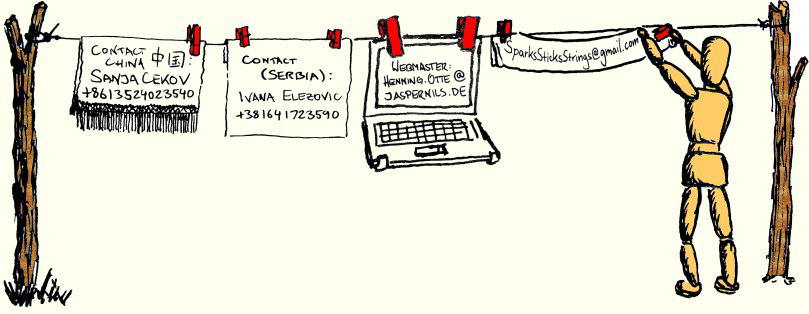 CONTACT
CHINA 中国:
SANJA CEKOV
+8613524023540
CONTACT
(SERBIA):
IVANA ELEZOVIC
+381641723590
WEBMASTER:
HENNING.OTTE@
JASPERNILS.DE
SparksSticksStrings@gmail.com